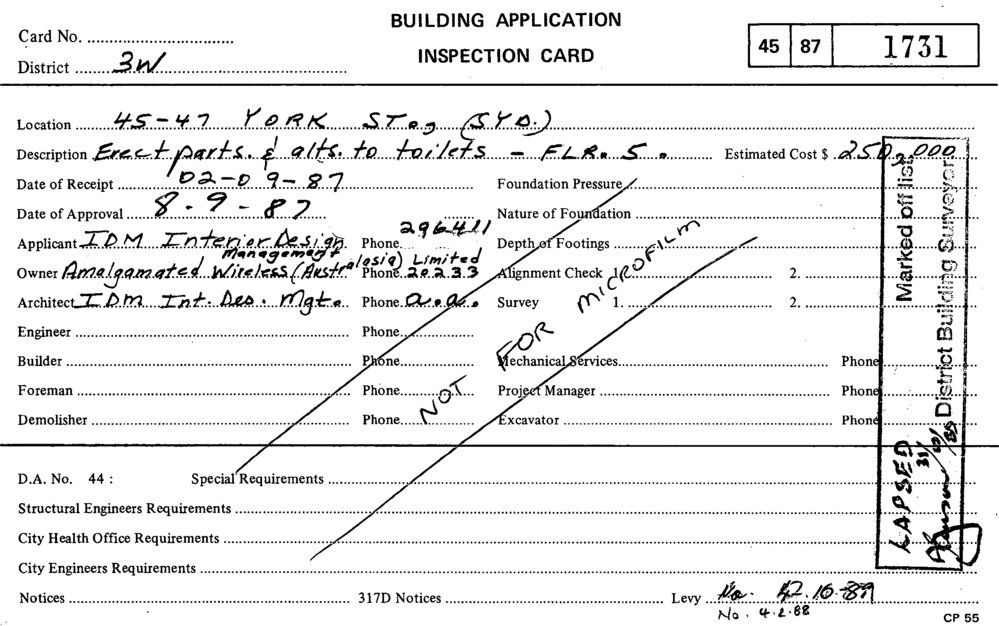 BUILDING APPLICATION
INSPECTION CARD
Card No.
45 87 1731
District 3W
Location 45-47 YORK ST., (SYD.)
Description Erect parts. & alts. to toilets - FLR. 5. Estimated Cost $ 250,000
Date of Receipt 02-09-87 Foundation Pressure
Date of Approval 8-9-87 Nature of Foundation
Applicant IDM Interior Design Management Phone 296411 Depth of Footings
Owner Amalgamated Wireless (Australasia) Limited Phone 20233 Alignment Check 1. 2.
Architect IDM Int. Des. Mgt. Phone a.a. Survey 1. 2.
Engineer Phone
Builder Phone Mechanical Services Phone
Foreman Phone Project Manager Phone
Demolisher Phone Excavator Phone
NOT FOR MICROFILM
Marked off list
District Building Surveyor
LAPSED
D.A. No. 44 : Special Requirements
Structural Engineers Requirements
City Health Office Requirements
City Engineers Requirements
Notices 317D Notices Levy No.
No. 4.2.88
CP 55